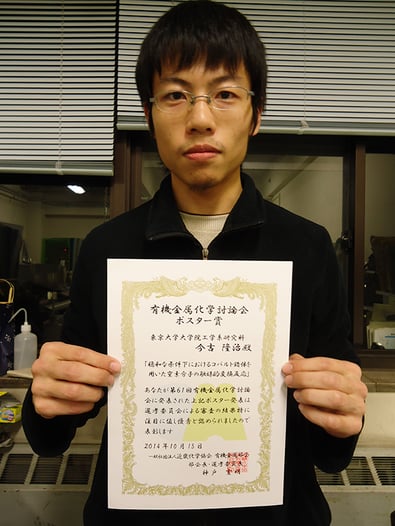 有機金属化学討論会
ポスター賞
東京大学大学院工学系研究科
今吉 隆治殿
「穏和な条件下におけるコバルト錯体を
用いた窒素分子の触媒的変換反応」
あなたが第61回有機金属化学討論
会に発表された上記ポスター発表は
選考委員会による審査の結果特に
注目に値し優秀と認められましたので
表彰します
2014年10月15日
一般社団法人近畿化学協会 有機金属部会
部会長・選考委員長
神戸